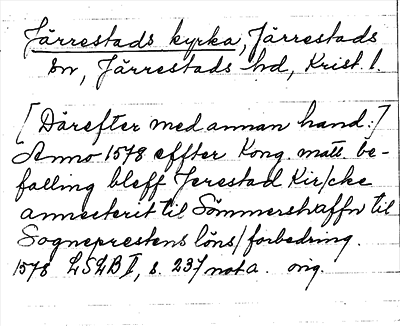 Järrestads kyrka, Järrestads
sn, Järrestads hd, Krist. l.
[Därefter med annan hand:]
Anno 1578 effter Kong. matt. be-
falling bleff Jerestad Kirſcke
annecterit til Sömmershaffn til
Sogneprestens löns/forbedring.
1578 LSLB II, s. 237 nota. orig.